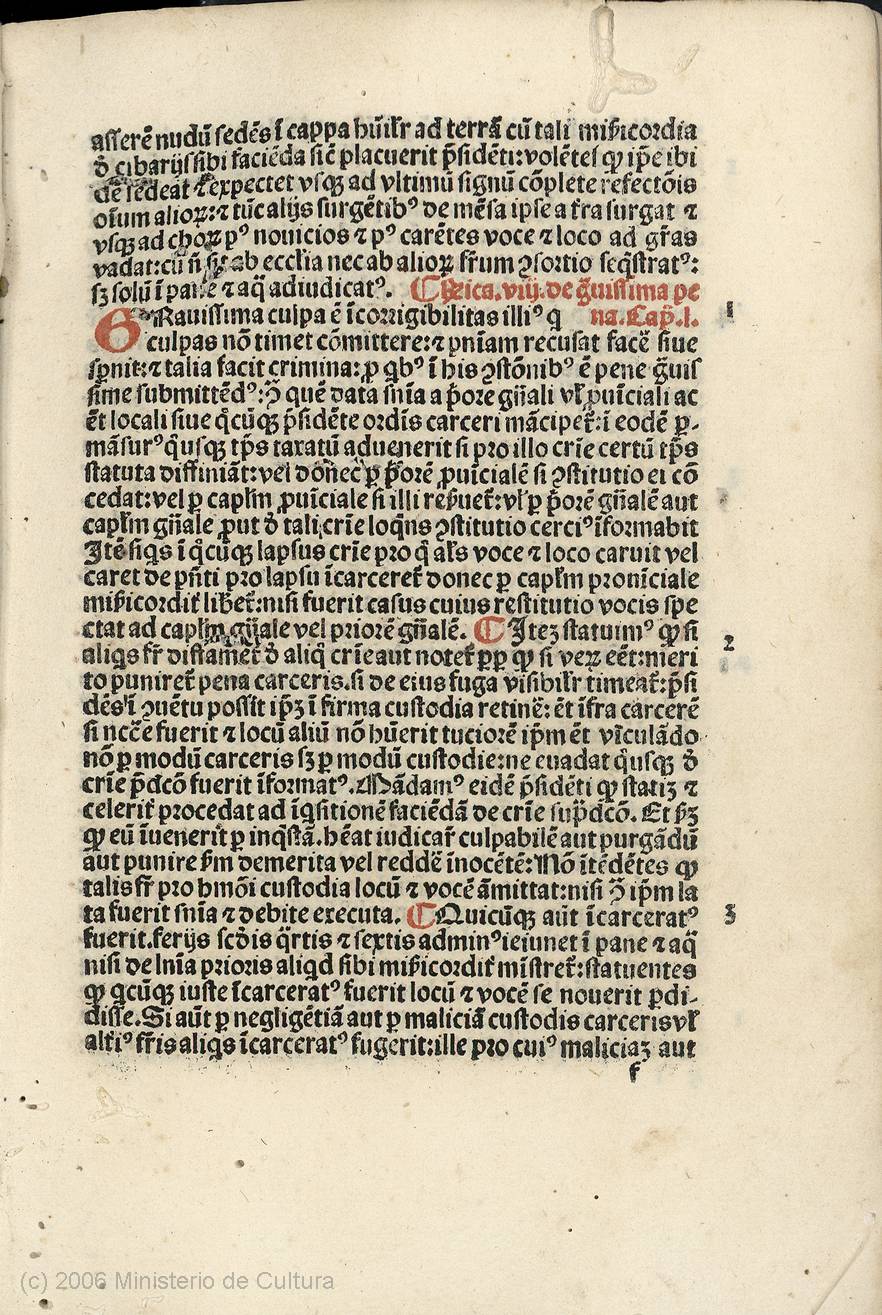 asserē nudū sedēs ī cappa hūil'r ad terrā cū tali mīsericordia
đ cibarijs sibi faciēda sic̄ placuerit p̄sidēti: volētes ꝙ ip̄e ibi
dē sedeat ⁊ expectet vsqꝫ ad vltimū signū cōplete refectōis
oīum alioꝝ: ⁊ tūc alijs surgētibꝰ de mēsa ipse a t̄ra surgat ⁊
vsqꝫ ad choꝝ pꝰ nouicios ⁊ pꝰ carētes voce ⁊ loco ad gr̄as
vadat: cū ab eccl'ia nec ab alioꝝ fr̄um ꝯsortio seq̄stratꝰ:
sꝫ solū ī pane ⁊ aq̄ adiudicatꝰ. ¶ Rica. viij. de g̃uissima pe
GRauissima culpa ē īcorrigibilitas illiꝰ q na. Cap̄. I. 1
culpas nō timet cōmittere: ⁊ pn̄iam recusat facē siue
sp̄nit: ⁊ talia facit crimina: ꝓ qbꝰ ī his ꝯstōnibꝰ ē pene g̃uis
sime submittēdꝰ: ꝯ̄ quē data sn̄ia a p̄ore gn̄ali vl' ꝓuīciali ac
ēt locali siue q̄cūqꝫ p̄sidēte ordīs carceri mācipet̄: ī eodē ꝑ-
māsurꝰ q̄usqꝫ tp̄s taxatū aduenerit si pro illo crīe certū tp̄s
statuta diffiniāt: vel donec ꝑ p̄orē ꝓuīcialē si ꝯstitutio ei cō
cedat: vel ꝑ capl'm ꝓuīciale si illi reṡuet̄: vl' ꝑ p̄orē gn̄alē aut
capl'm gn̄ale ꝓut đ tali crīe loq̄ns ꝯstitutio cerciꝰ īformabit
Itē siqs ī q̄cūqꝫ lapsus crīe pro q̄ al's voce ⁊ loco caruit vel
caret de pn̄ti pro lapsu īcarceret̄ donec ꝑ capl'm prouīciale
mīsericordit̄ libet̄: nisi fuerit casus cuius restitutio vocis spe
ctat ad capl'm gn̄ale vel priorē gn̄alē. ¶ Itez statuimꝰ ꝙ si 2
aliqs fr̄ diffamet̄ đ aliq̄ crīe aut notet̄ ꝓp̄ ꝙ si veꝝ eēt: meri
to puniret̄ pena carceris. si de eius fuga visibil'r timeat̄: p̄si
dēs ī ꝯuētu possit ip̄ꝫ ī firma custodia retinē: ēt īfra carcerē
si ncc̄e fuerit ⁊ locū aliū nō hūerit tuciorē ip̄m ēt vīculādo
nō ꝑ modū carceris sꝫ ꝑ modū custodie: ne euadat q̄usqꝫ đ
crīe p̄dcō fuerit īformatꝰ. Mādamꝰ eidē p̄sidēti ꝙ statiꝫ ⁊
celerit̄ procedat ad īq̄sitionē faciēdā de crīe sup̄dcō. Et ꝙ
ꝙ eū īuenerit ꝑ inq̄stā. hēat iudicar̄ culpabilē aut purgādū
aut punire ẜm demerita vel reddē īnocētē: Nō ītēdētes ꝙ
talis fr̄ pro hmōi custodia locū ⁊ vocē āmittat: nisi ꝯ̄ ip̄m la
ta fuerit sn̄ia ⁊ debite executa. ¶ Quicūqꝫ aūt īcarceratꝰ 3
fuerit. ferijs scđis q̄rtis ⁊ sextis ad minꝰ ieiunet ī pane ⁊ aq̄
nisi de ln̄ia prioris aliqd sibi mīsericordit̄ mīstret̄: statuentes
ꝙ qcūqꝫ iuste īcarceratꝰ fuerit locū ⁊ vocē se nouerit ꝑdi-
disse. Si aūt ꝑ negligētiā aut ꝑ maliciā custodis carceris vl'
alt̄iꝰ fr̄is aliqs īcarceratꝰ fugerit: ille pro cuiꝰ maliciaꝫ aut
f
(c) 2006 Ministerio de Cultura